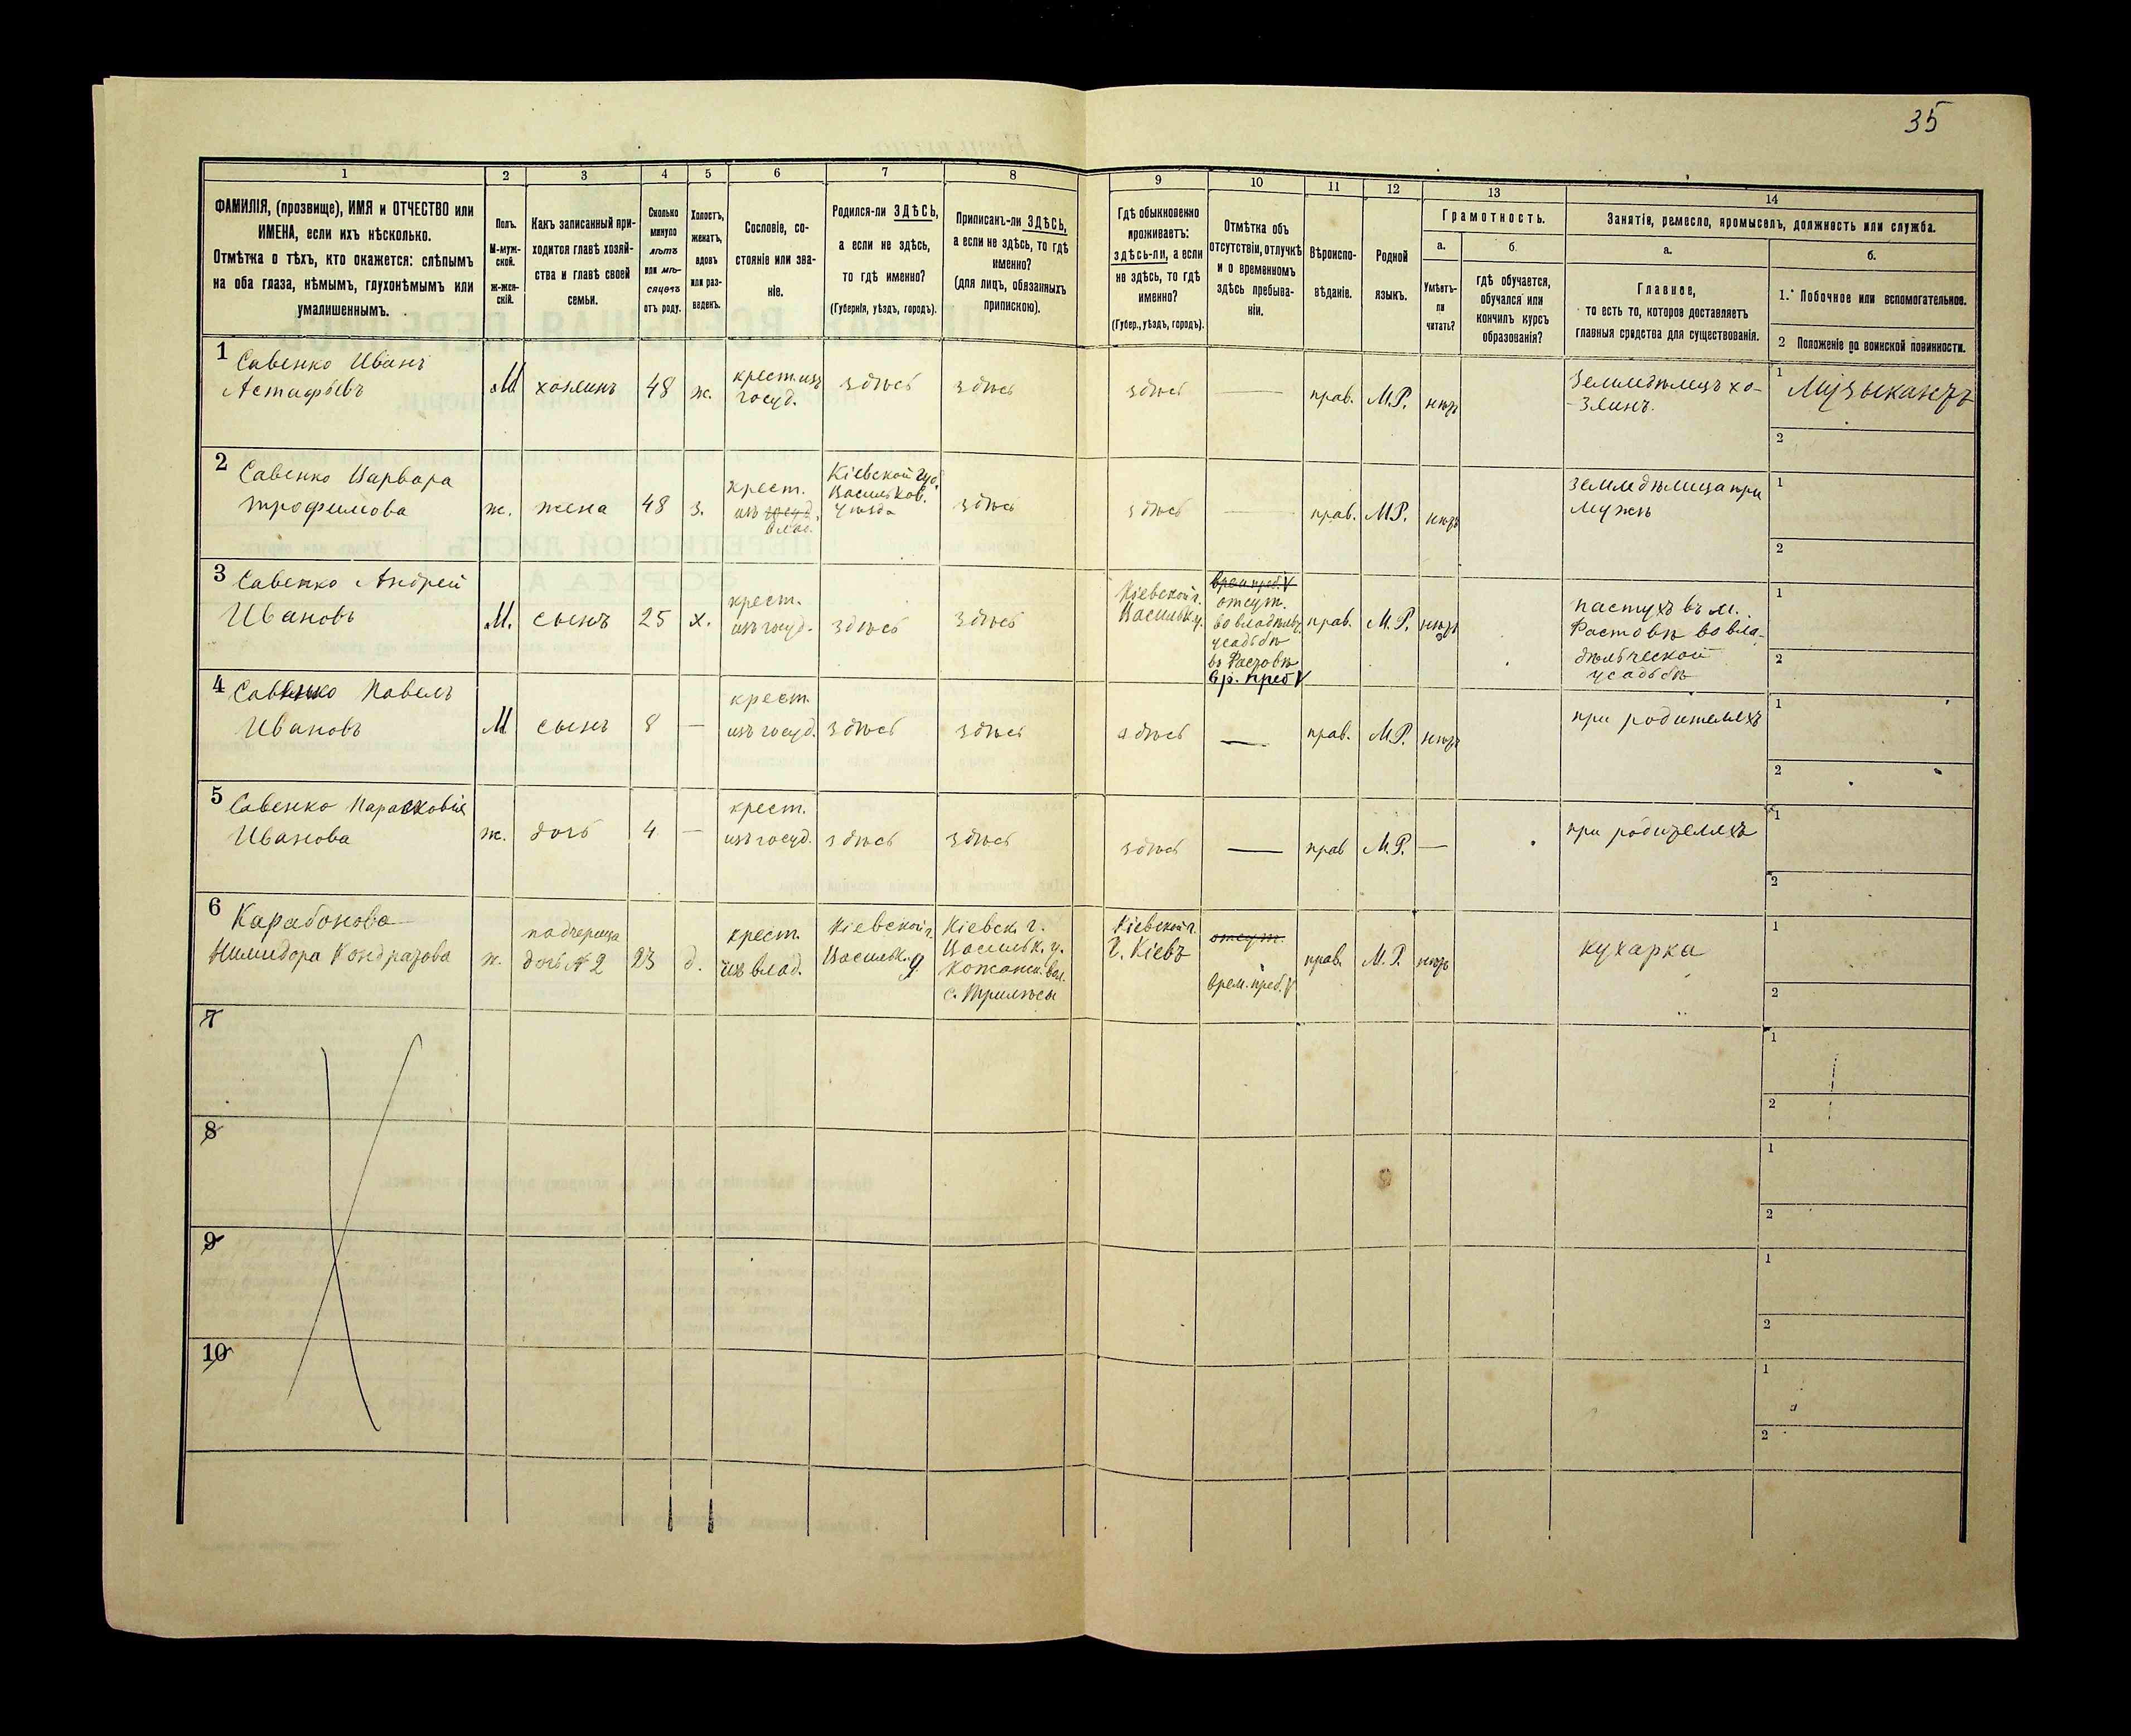 35
1 2 3 4 5 6 7 8 9 10 11 12 13 14
ФАМИЛІЯ, (прозвище), ИМЯ и ОТЧЕСТВО или
ИМЕНА, если ихъ нѣсколько.
Отмѣтка о тѣхъ, кто окажется: слѣпымъ
на оба глаза, нѣмымъ, глухонѣмымъ или
умалишеннымъ.
Полъ.
М-муж-
ской.
ж-жен-
скій.
Какъ записанный при-
ходится главѣ хозяй-
ства и главѣ своей
семьи.
Сколько
минуло
лѣтъ
или мѣ-
сяцевъ
отъ роду.
Холостъ,
женатъ,
вдовъ
или раз-
веденъ.
Сословіе, со-
стояніе или зва-
ніе.
Родился-ли ЗДѢСЬ,
а если не здѣсь,
то гдѣ именно?
(Губернія, уѣздъ, городъ).
Приписанъ-ли ЗДѢСЬ,
а если не здѣсь, то гдѣ
именно?
(для лицъ, обязанныхъ
припискою).
Гдѣ обыкновенно
проживаетъ:
здѣсь-ли, а если
не здѣсь, то гдѣ
именно?
(Губер., уѣздъ, городъ).
Отмѣтка объ
отсутствіи, отлучкѣ
и о временномъ
здѣсь пребыва-
ніи.
Вѣроиспо-
вѣданіе.
Родной
языкъ.
Грамотность.
а.
Умѣетъ-
ли
читать?
б.
гдѣ обучается,
обучался или
кончилъ курсъ
образованія?
Занятіе, ремесло, промыселъ, должность или служба.
а.
Главное,
то есть то, которое доставляетъ
главныя средства для существованія.
б.
1. Побочное или вспомогательное.
2 Положеніе по воинской повинности.
1 Савенко Иванъ
Астафьевъ
М хозяинъ 48 ж.
крест. изъ
госуд.
здѣсь здѣсь здѣсь — прав. М.Р. нѣтъ
Земледѣлецъ хо-
-зяинъ.
1 Музыкантъ
2
2 Савенко Варвара
Трофимова
ж. жена 48 з.
крест.
изъ госуд.
влад.
Кіевской губ.
Васильков.
уѣзда
здѣсь здѣсь — прав. М.Р. нѣтъ
земледѣлица при
мужѣ
1
2
3 Савенко Андрей
Ивановъ
М. сынъ 25 х.
крест.
изъ госуд.
здѣсь здѣсь
Кіевской г.
Васильк. у.
врем. преб. V
отсут.
во владѣльч.
усадьбѣ
въ Фастовѣ
вр. преб V
прав. М.Р. нѣтъ
пастухъ въ м.
Фастовѣ во вла-
дѣльческой
усадьбѣ
1
2
4 Савенко Павелъ
Ивановъ
М сынъ 8 —
крест.
изъ госуд.
здѣсь здѣсь здѣсь — прав. М.Р. нѣтъ
при родителяхъ
1
2
5 Савенко Парасковія
Иванова
ж. дочь 4 —
крест.
изъ госуд.
здѣсь здѣсь здѣсь — прав М.Р. —
при родителяхъ
1
2
6 Карабонова
Минидора Кондратова
ж.
падчерица
дочь № 2
23 д.
крест.
изъ влад.
Кіевской г.
Васильк. у
Кіевск. г.
Васильк. у.
Кожанск. вол.
с. Трилѣсы
Кіевской г.
г. Кіевъ
отсут.
врем. преб. V
прав. М.Р. нѣтъ
кухарка
1
2
7
1
2
8
1
2
9
1
2
10
1
2